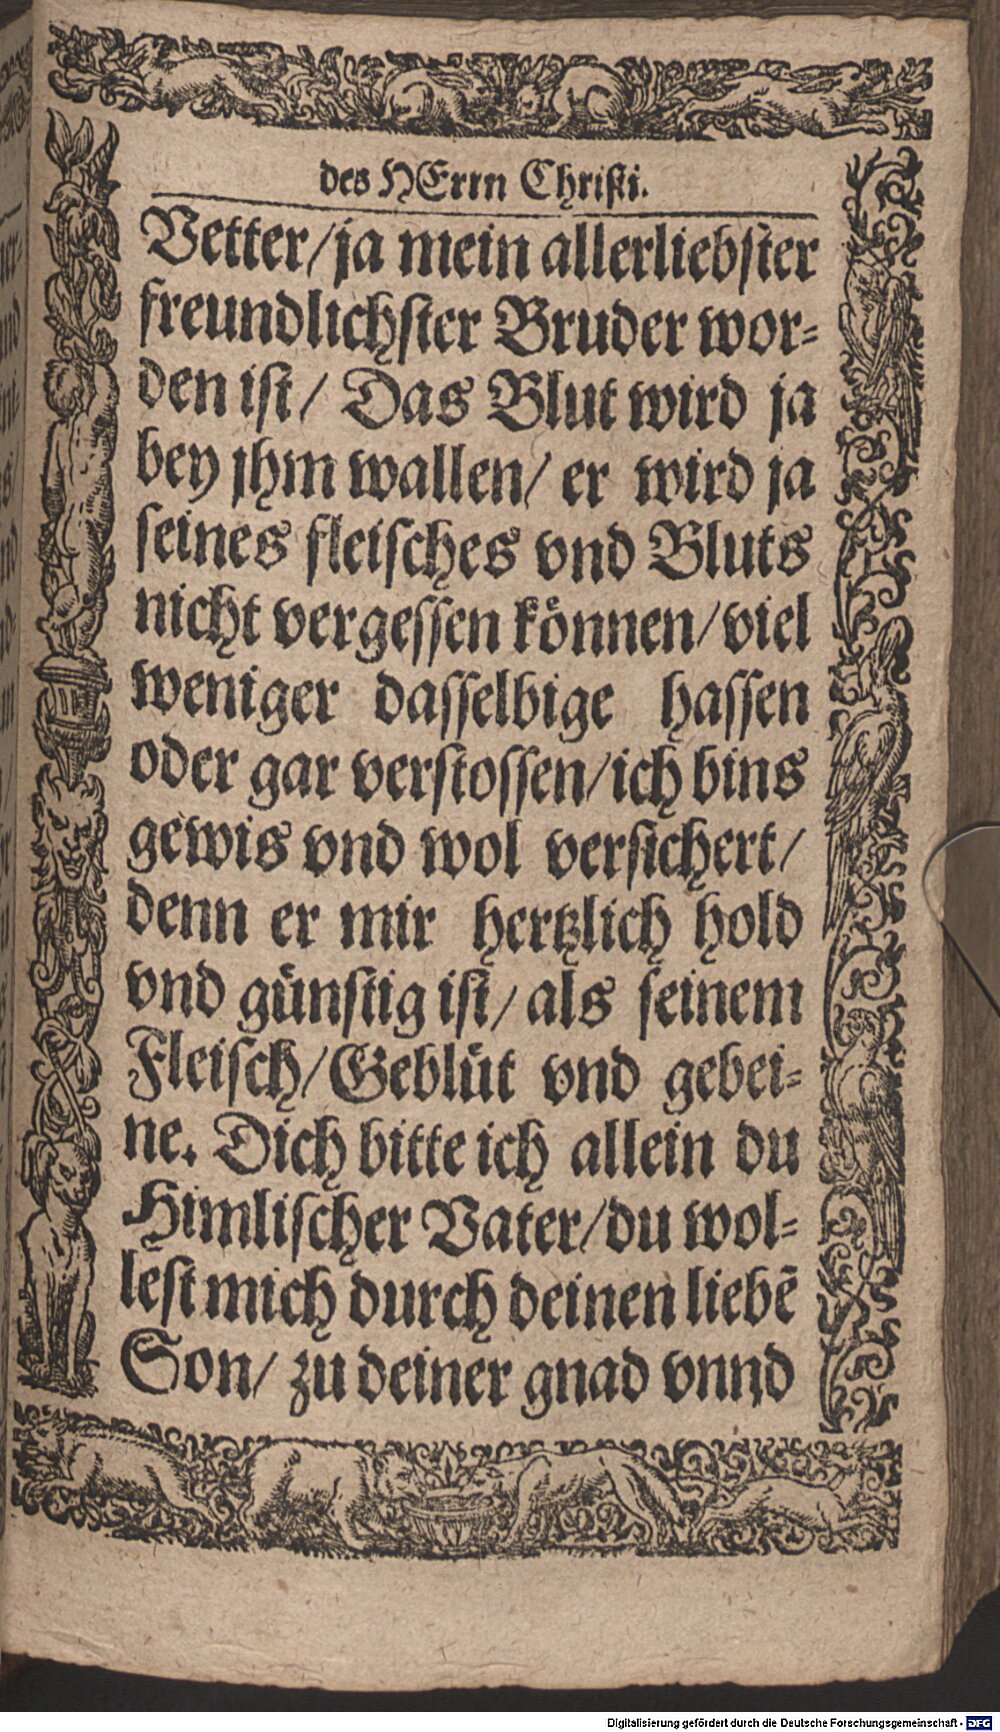 des HErrn Christi.
Vetter/ja mein allerliebster
freundlichster Bruder wor⸗
den ist/ Das Blut wird ja
bey jhm wallen/ er wird ja
seines fleisches vnd Bluts
nicht vergessen können/viel
weniger dasselbige hassen
oder gar verstossen/ich bins
gewis vnd wol versichert/
denn er mir hertzlich hold
vnd günstig ist/ als seinem
Fleisch/Geblüt vnd gebei⸗
ne. Dich bitte ich allein du
Himlischer Vater/du wol⸗
lest mich durch deinen liebē
Son/ zu deiner gnad vnnd
Digitalisierung gefördert durch die Deutsche Forschungsgemeinschaft - DFG